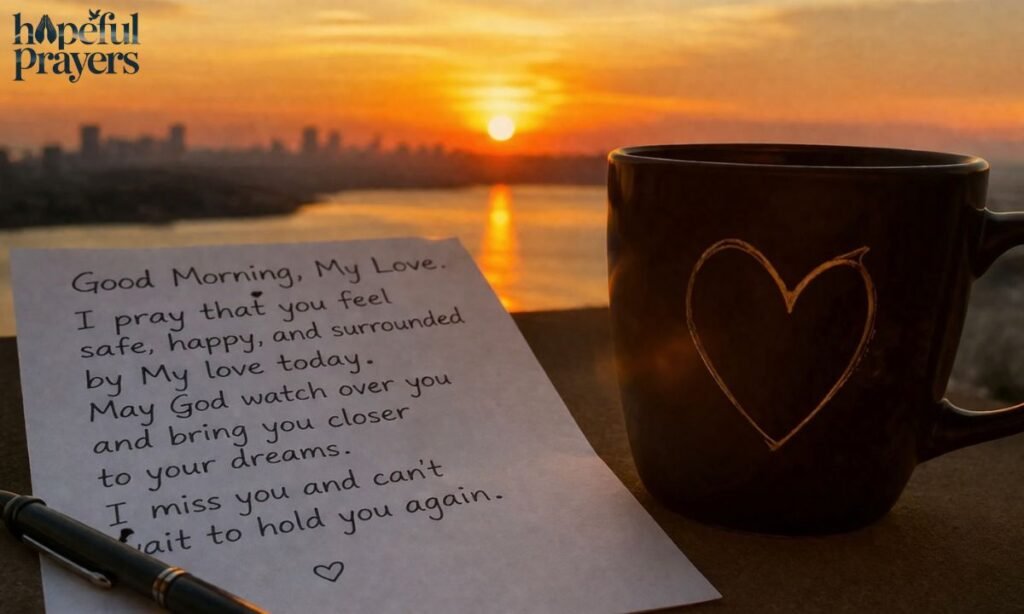 hopeful
Prayers
Good Morning, My Love.
I pray that you feel
safe, happy, and surrounded
by My love today.
May God watch over you
and bring you closer
to your dreams.
I miss you and can't
wait to hold you again.